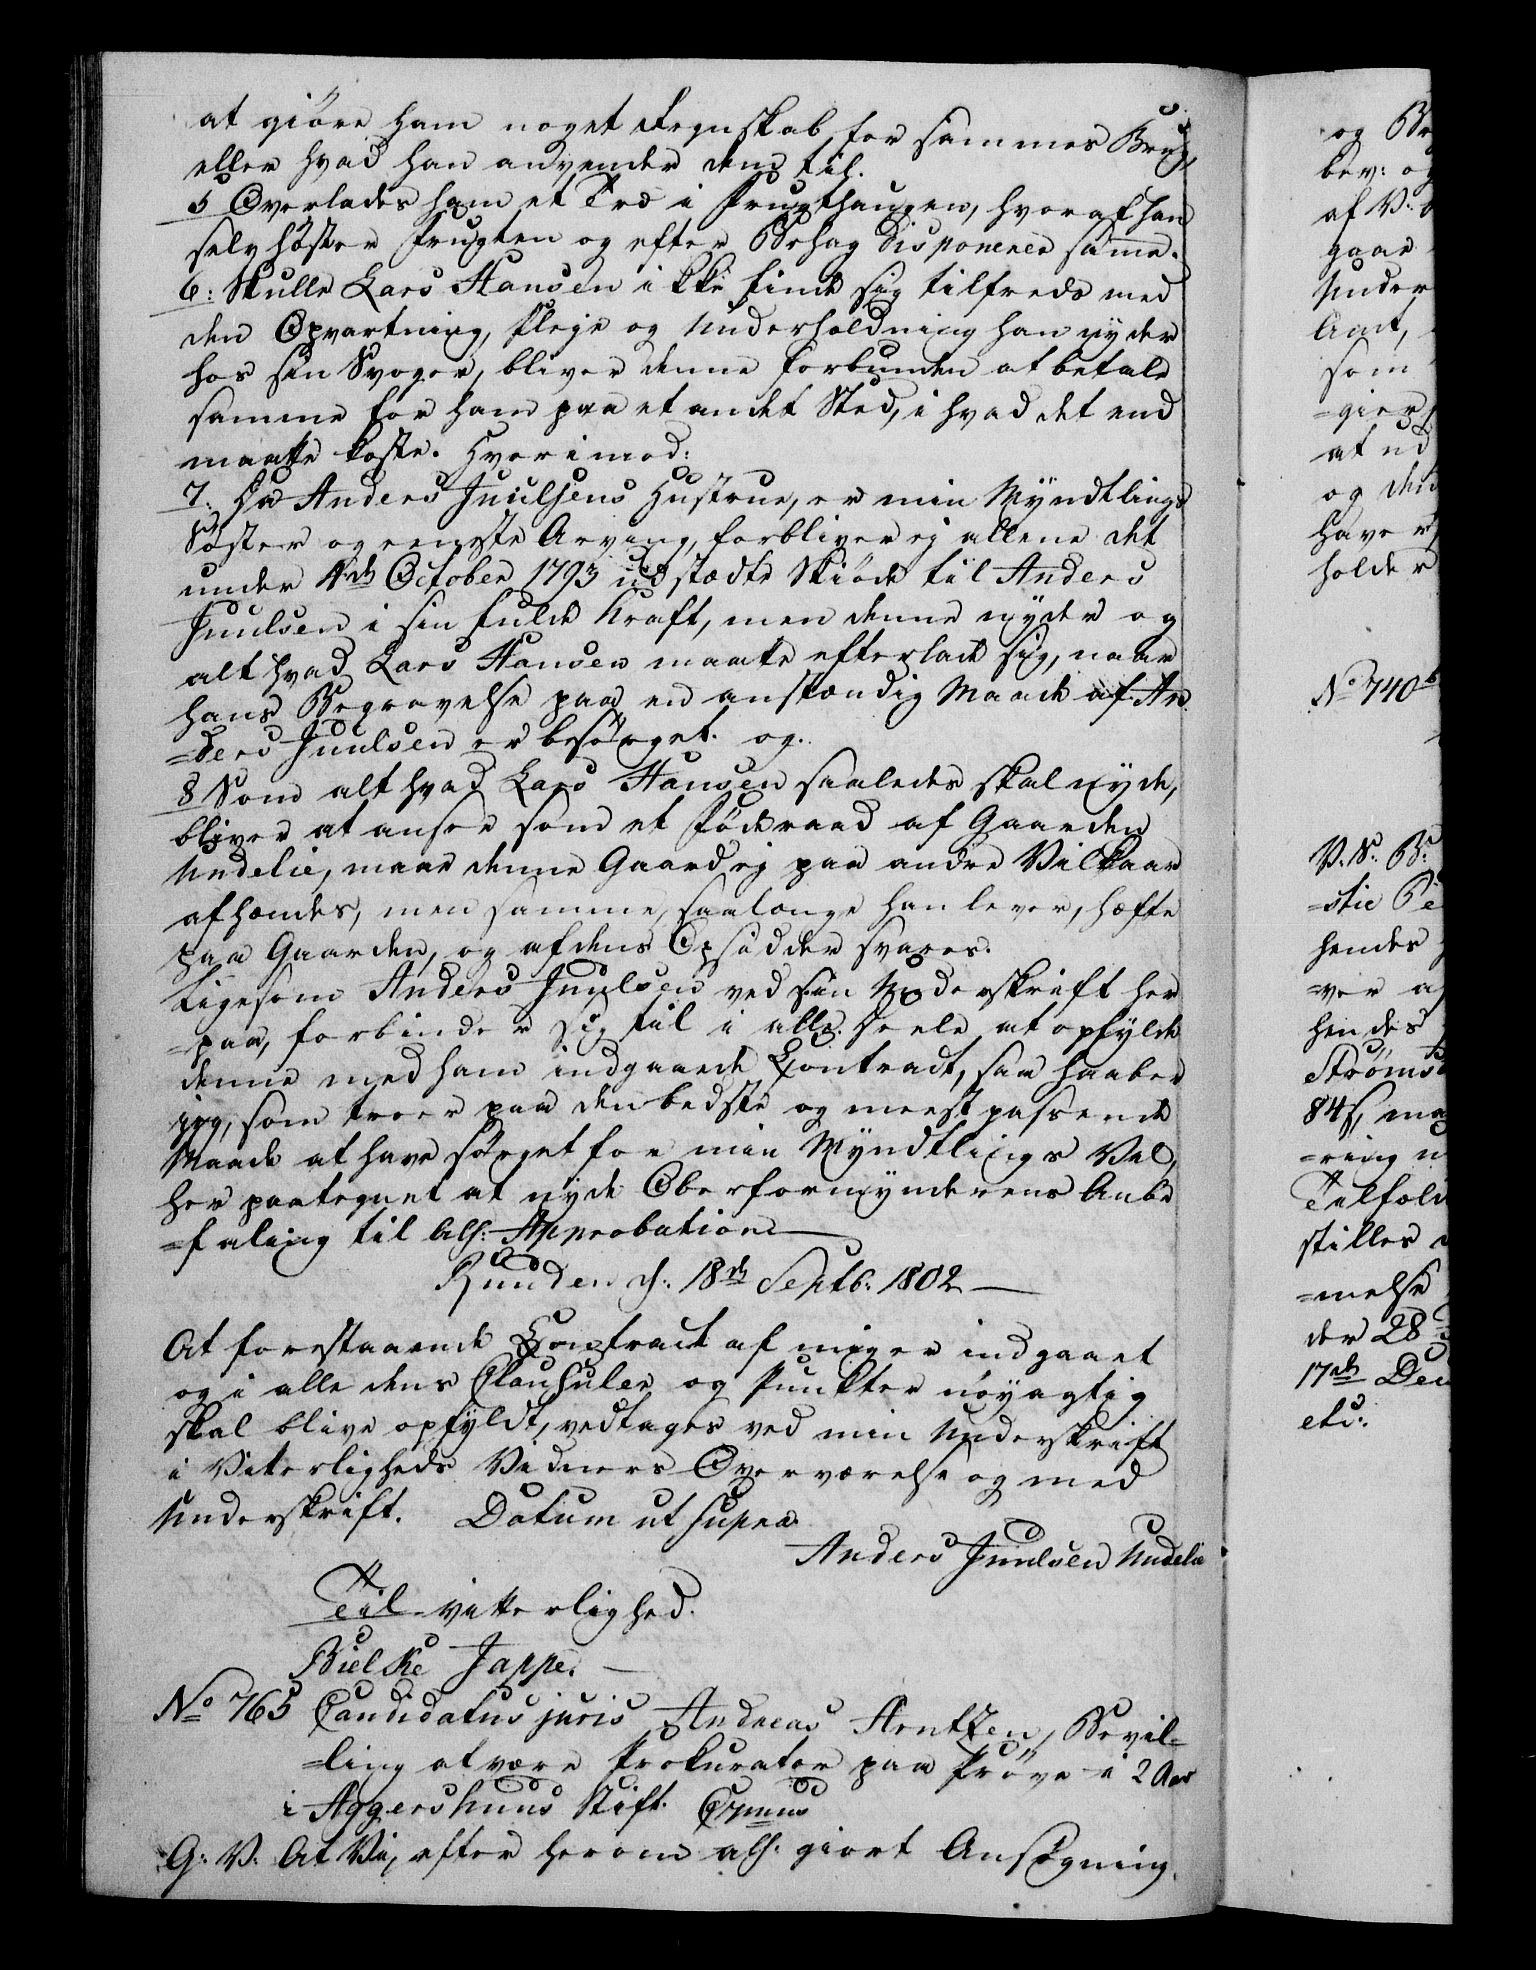 at giöre ham noget Regnskab for sammes Brug,
eller hvad han anvender dem til.
5 Overlades ham et Træ i Frugthaugen, hvoraf han
selv höster Frugten og efter Behag disponerer samme.
6: Skulle Lars Hansen ikke finde sig tilfreds med
den Opvartning, Pleje og Underholdning han nyder
hos sin Svoger, bliver denne forbunden at betale
samme for ham paa et andet Sted, i hvad det end
maatte koste. Hvorimod:
7. Da Anders Juulsens Hustrue, er min Myndtlings
Söster og eeneste Arving, forbliver ej allene det
under 4de October 1793 udstædte Skiöde til Anders
Juulsen i sin fulde Kraft, men denne nyder og
alt hvad Lars Hansen maatte efterlade sig, naar
hans Begravelse paa en anstændig Maade af An
=ders Juulsen er besörget. og.
8 Som alt hvad Lars Hansen saaledes skal nyde,
bliver at ansee som et Föderaad af Gaarden
Undelie, maae denne Gaard ej paa andre Vilkaar
afhændes, men samme, saalænge han lever, hæfte
paa Gaarden, og af dens Opsidder svares.
Ligesom Anders Juulsen ved sin Underskrift her
=paa, forbinder sig til i alle Deele at opfylde
denne med ham indgaaede Contract, saa haaber
jeg, som troer paa den bedste og meest passende
Maade at have sörget for min Myndtlings Vel,
her paategnet at nyde Oberformynderens Anbe
=faling til alh: Approbation
Ruuden d: 18de Septb: 1802
At forestaaende Contract af mig er indgaaet
og i alle dens Clausuler og Punkter nöyagtig
skal blive opfyldt, vedtages ved min Underskrift
i Vitterligheds Vidners Overværelse og med
Underskrift. Datum ut supra
Anders Juulsen Undelie
Til vitterlighed.
Bielke Jappe.
No 765 Candidatus juris Andreas Arntzen, Bevil=
=ling at være Prokurator paa Pröve i 2 Aar
i Aggershuus Stift.
G: V: At Vi, efter herom alh. giort Ansögning,
og
bev: og
af V:
gaar
Under
Amt,
som
=gier
at ud
og
haver
holder
No 740b
V. S: B:
=stie
hendes
=ver
hendes
Ströms
84 f,
=ring
Tilfæld
stilles
=melse
der 28
17de Dec
etc: